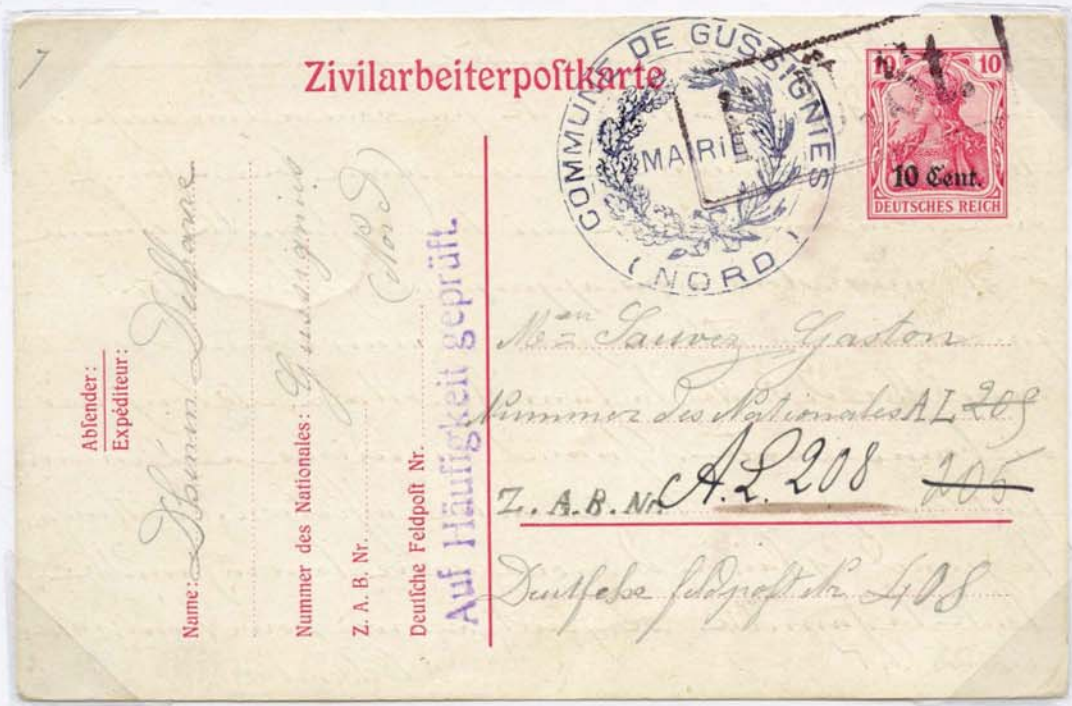 Zivilarbeiterpoſtkarte
COMMUNE DE GUSSIGNIES
MAIRIE
(NORD)
10 10
10 Cent.
DEUTSCHES REICH
Abſender:
Expéditeur:
Name:
Nummer des Nationales:
(Nord)
Z. A. B. Nr.
Deutſche Feldpoſt Nr.
Auf Häufigkeit geprüft.
Gaston
Nummer des Nationales AL 209
Z. A. B. Nr. A.L. 208 205
Deutſche feldpoſt Nr 408